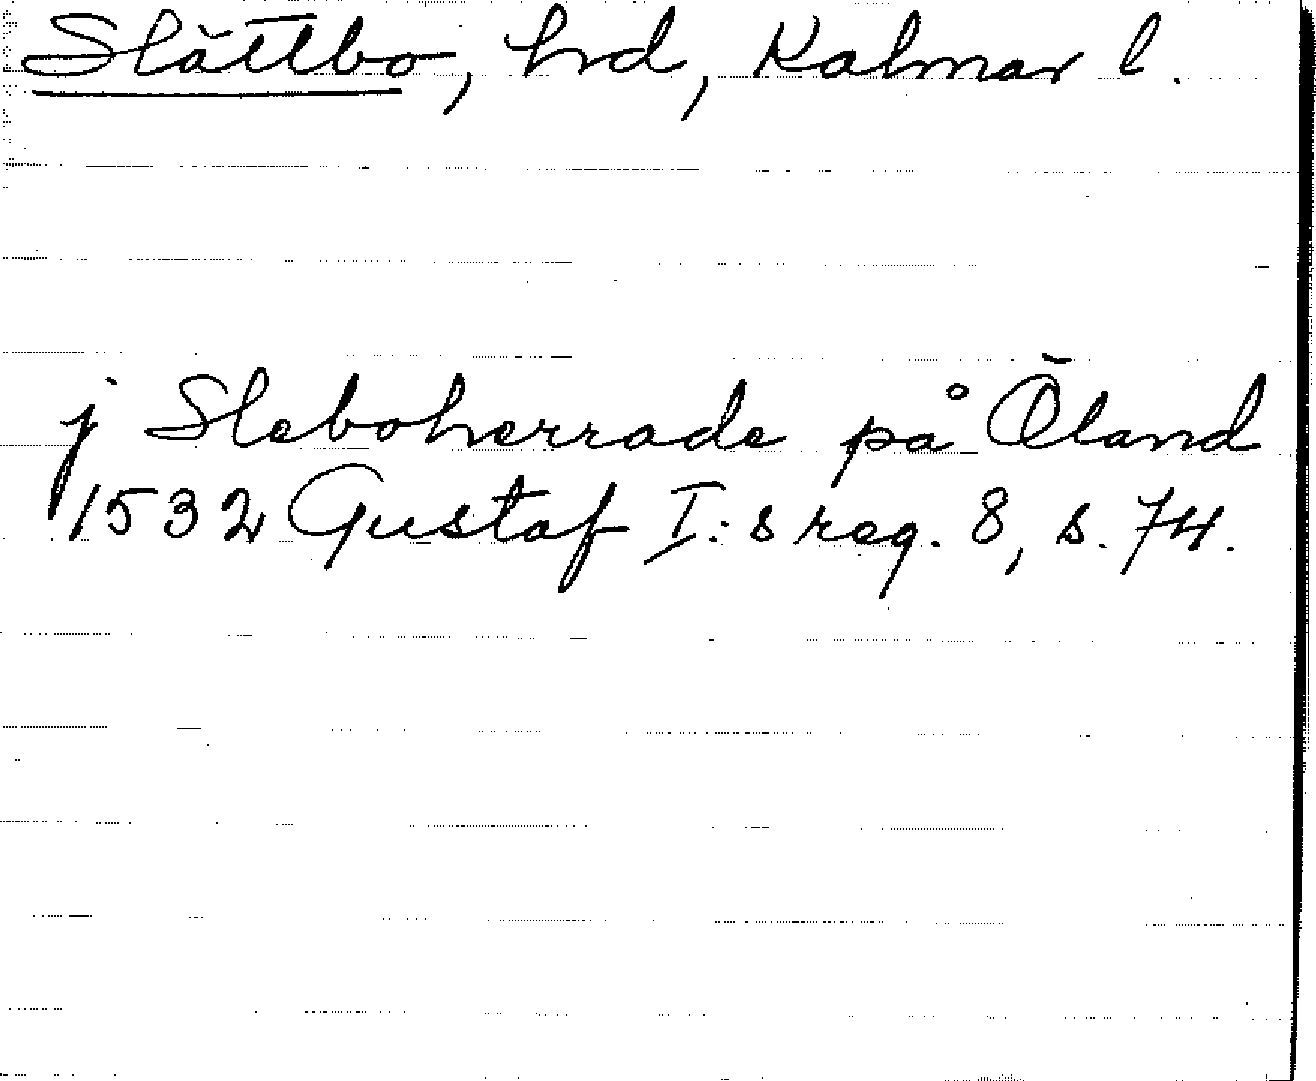 Slättbo, hrd, Kalmar l.
j Sleboherrade på Öland
1532 Gustaf I:s reg. 8, s. 74.